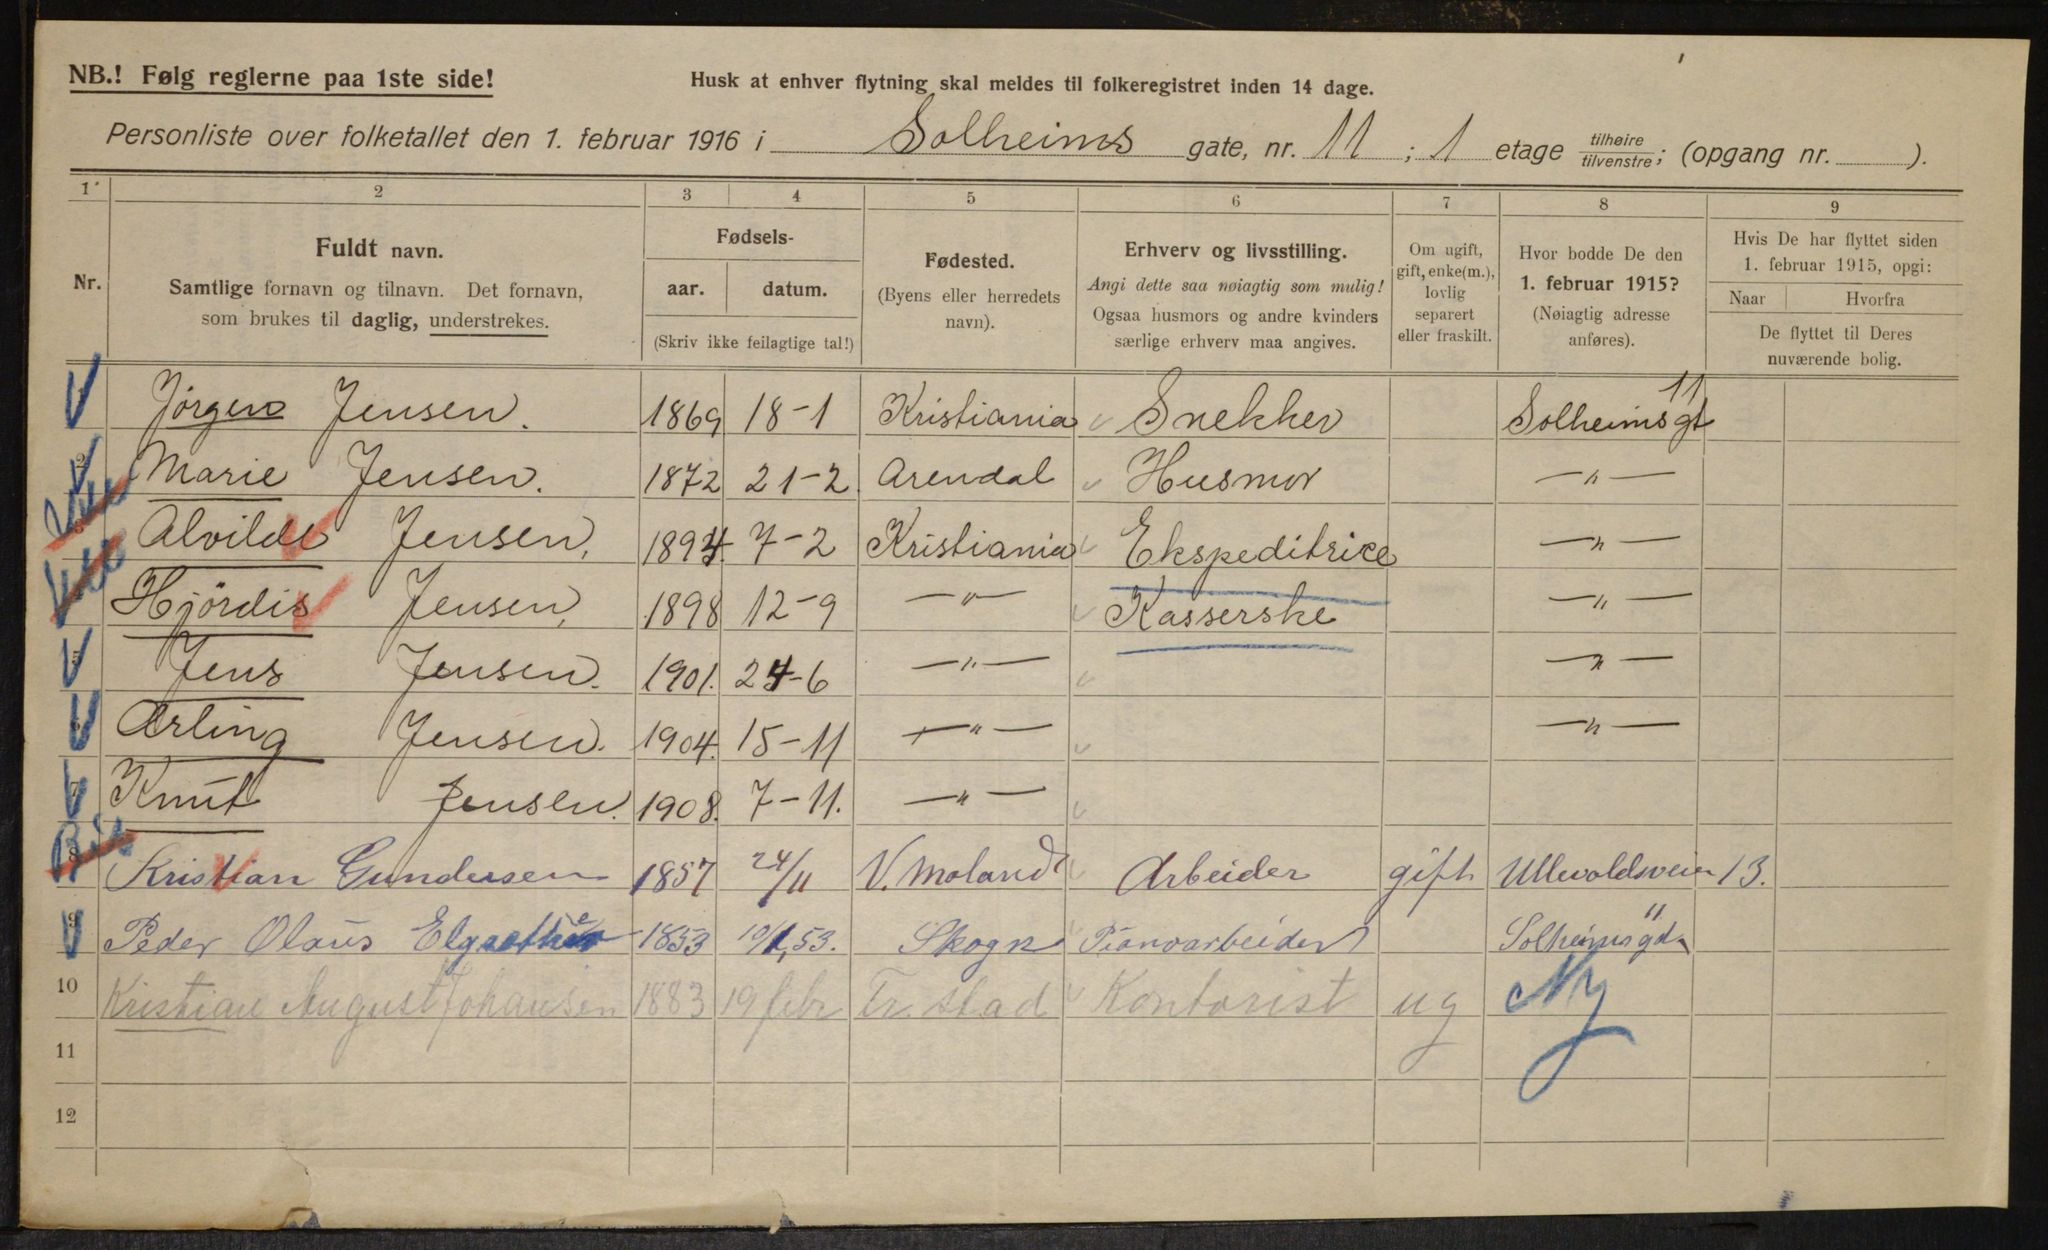 NB.! Følg reglerne paa 1ste side!
Husk at enhver flytning skal meldes til folkeregistret inden 14 dage.
Personliste over folketallet den 1. februar 1916 i Solheims gate, nr. 11; 1 etage tilhøire tilvenstre; (opgang nr. ).
1 2 3 4 5 6 7 8 9
Nr.
Fuldt navn.
Samtlige fornavn og tilnavn. Det fornavn,
som brukes til daglig, understrekes.
Fødsels-
aar. datum.
(Skriv ikke feilagtige tal!)
Fødested.
(Byens eller herredets
navn).
Erhverv og livsstilling.
Angi dette saa nøiagtig som mulig!
Ogsaa husmors og andre kvinders
særlige erhverv maa angives.
Om ugift,
gift, enke(m.),
lovlig
separert
eller fraskilt.
Hvor bodde De den
1. februar 1915?
(Nøiagtig adresse
anføres).
Hvis De har flyttet siden
1. februar 1915, opgi:
Naar Hvorfra
De flyttet til Deres
nuværende bolig.
Jörgen Jensen. 1869 18-1 Kristiania Snekker Solheimsgt 11
2 Marie Jensen. 1872 21-2. Arendal Husmor —"—
3 Alvilde Jensen, 1894. 7-2 Kristiania Ekspeditrice —"—
Hjördis Jensen, 1898 12-9 —"— Kasserske —"—
5 Jens Jensen. 1901. 24-6 —"— —"—
6 Arling Jensen. 1904. 15-11 —"— —"—
7 Knut Jensen. 1908. 7-11. —"—
8 Kristian Gundersen 1857 24/11 V. Moland Arbeider gift Ullevoldsveien 13.
9 Peder Olaus 1853 53. Skogn Pianoarbeider Solheimsgd 11
10 Kristian August Johansen 1883 19 febr Fr. stad Kontorist ug Ny
11
12